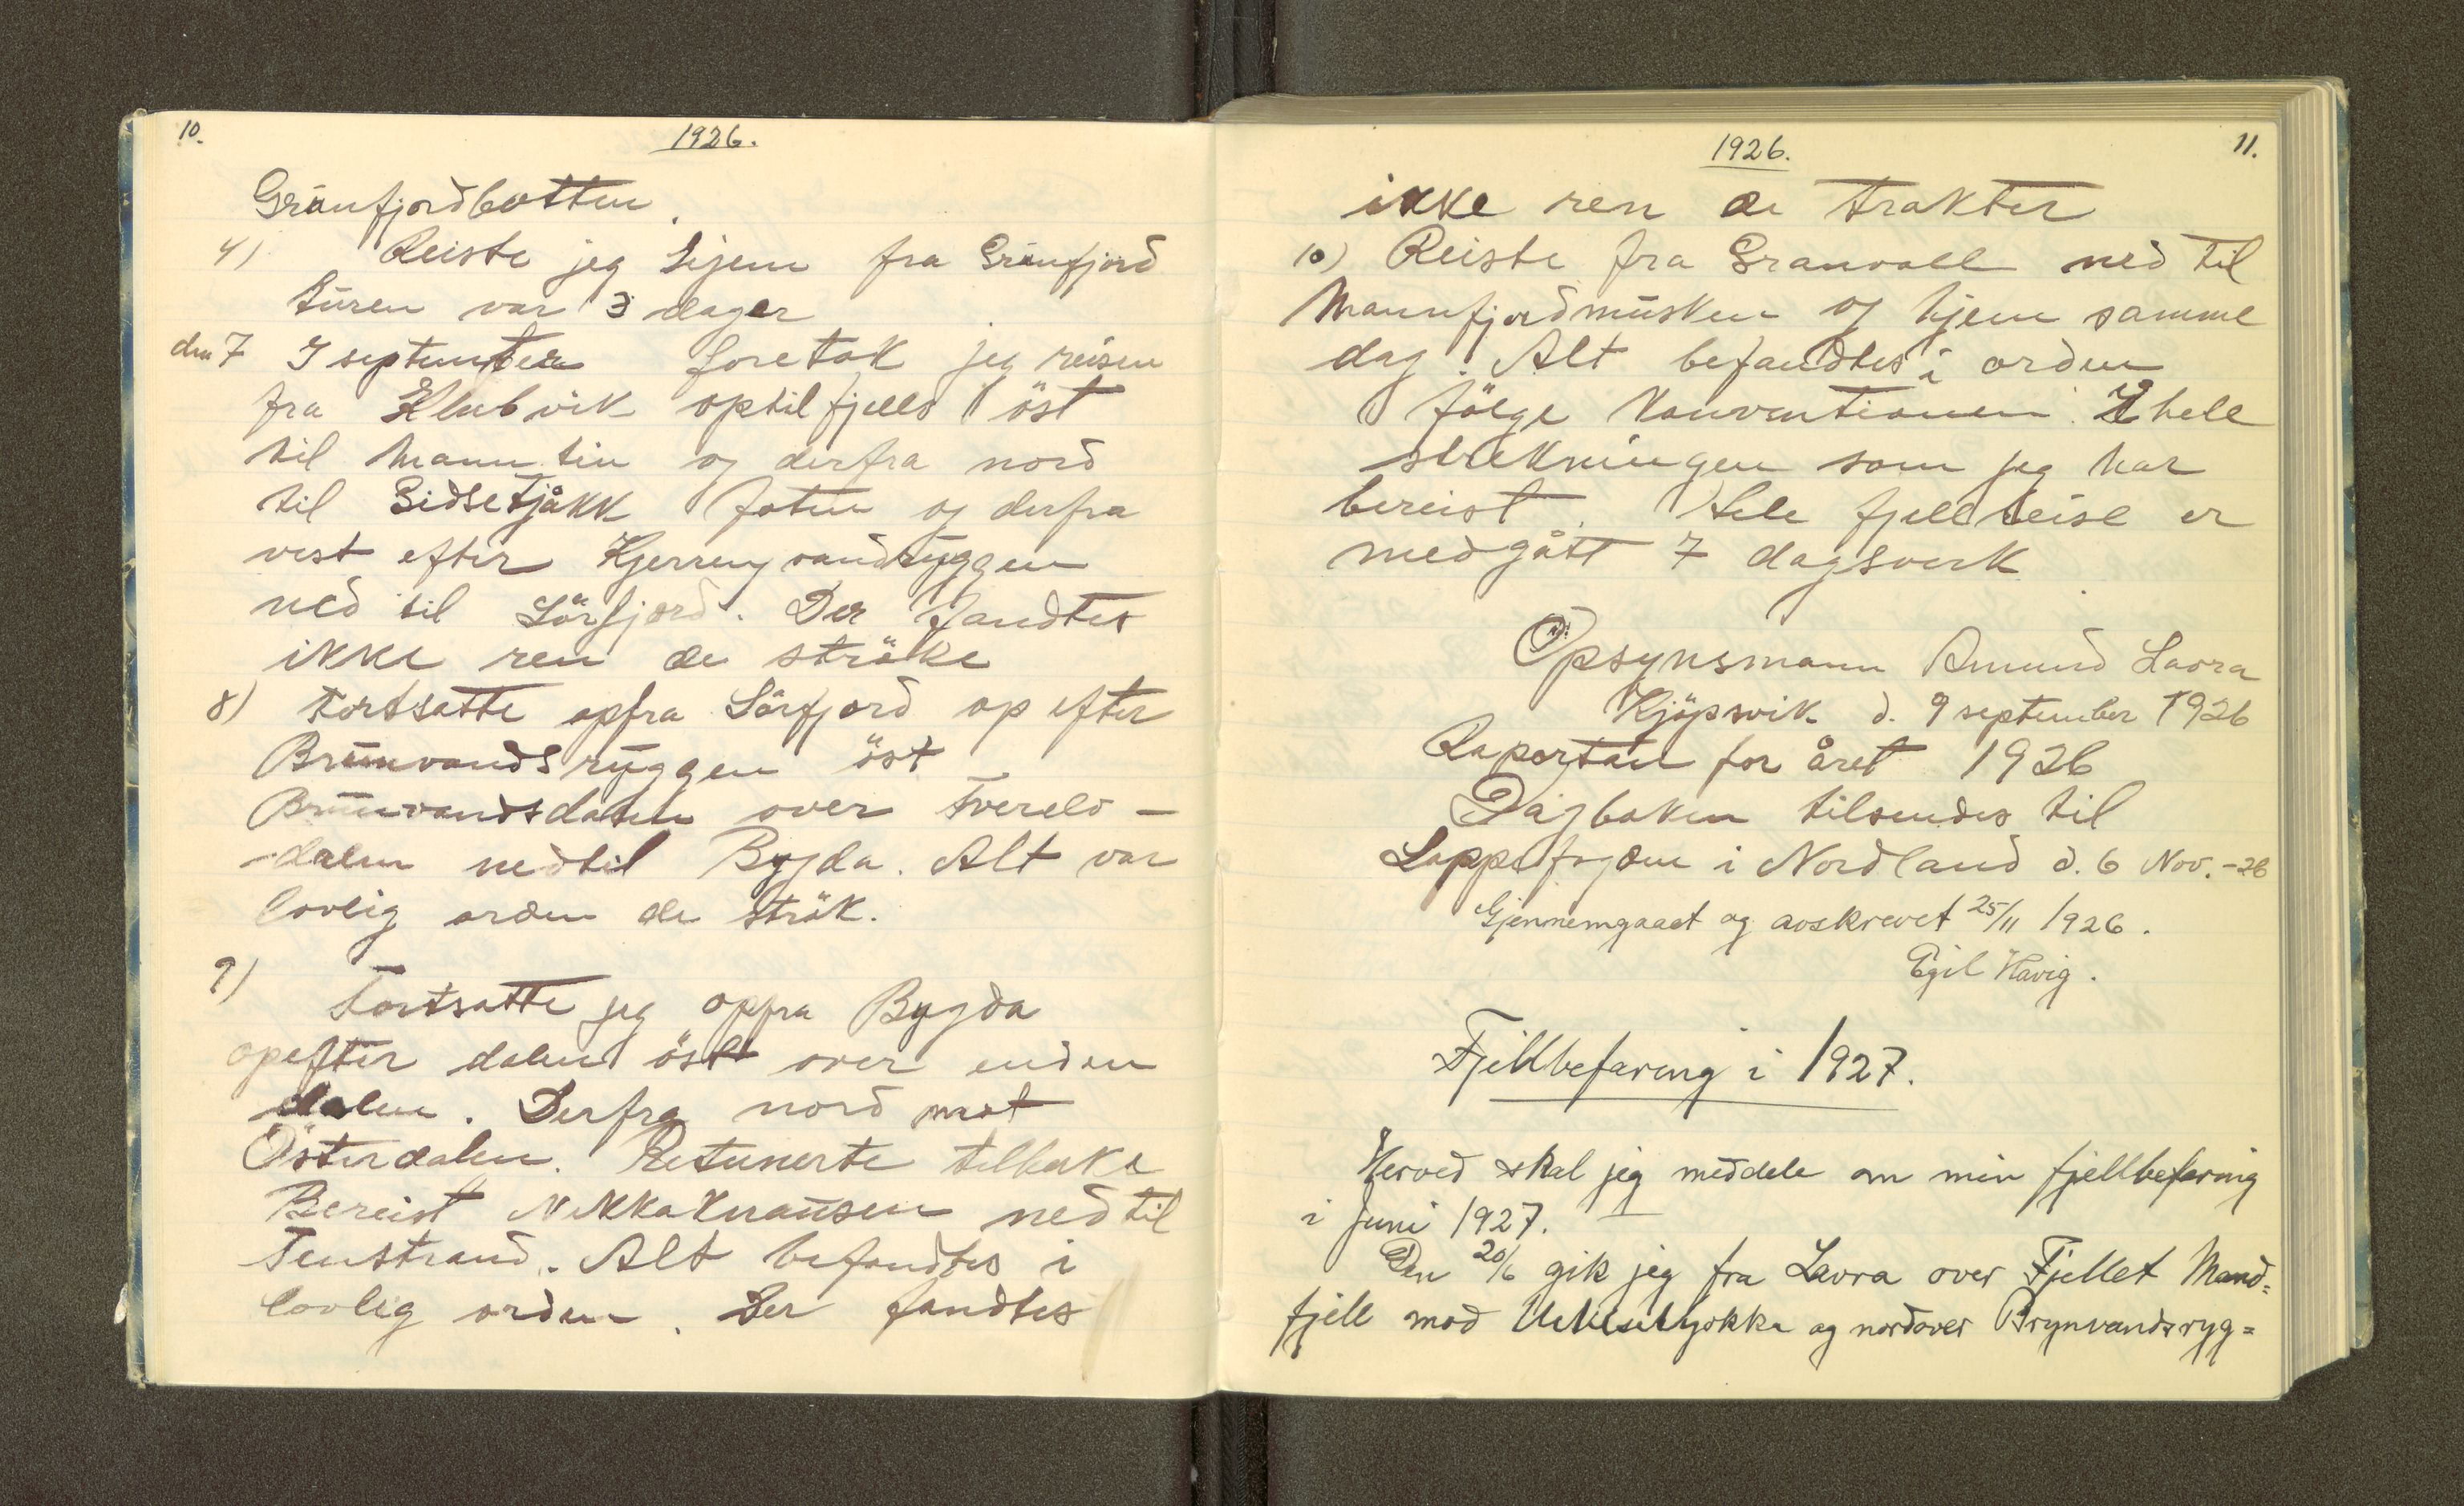 10.
1926.
Grünfjordbotten.
4) Reiste jeg hjem fra Grünfjord
türen var 3 dager
den 7 I september foretok jeg reisen
fra Klubvik optilfjells öst
til Manntin og derfra nord
til Sidsetjåkk foten og derfra
vest efter Kjerringvandryggen
ned til Sörfjord. Der fandtes
ikke ren de ströke
8) Fortsatte opfra Sörfjord op efter
Brünvandsryggen öst
Brünvandsdalen over Tverelv-
-dalen nedtil Bygda. Alt var
lovlig orden de strök.
9)
Fortsatte jeg oppra Bygda
opefter dalen öst over enden
dalen. Derfra nord mot
Österdalen. Retunerte tilbake
Bereist Nikkaknausen ned til
Tenstrand. Alt befandtes i
lovlig orden. Der fandtes
1926.
11.
ikke ren de trakter
10) Reiste fra Granvall ned til
Mannfjordmüsken og hjem samme
dag. Alt befandtes i orden
fölge Konventionen. I hele
strekningen som jeg har
bereist. Hele fjellreise er
medgått 7 dagsverk
Opsynsmann Amund Lavra
Kjöpsvik d. 9 september 1926
Raportan for året 1926
Dagboken tilsendes til
Lappefogden i Nordland d. 6 Nov. -26
Gjennemgaaet og avskrevet 25/11 1926.
Egil Havig.
Fjellbefaring i 1927.
Herved skal jeg meddele om min fjellbefaring
i Juni 1927.
Den 20/6 gik jeg fra Lavra over Fjellet Mand=
fjell mod og nordover Brynvandsryg=